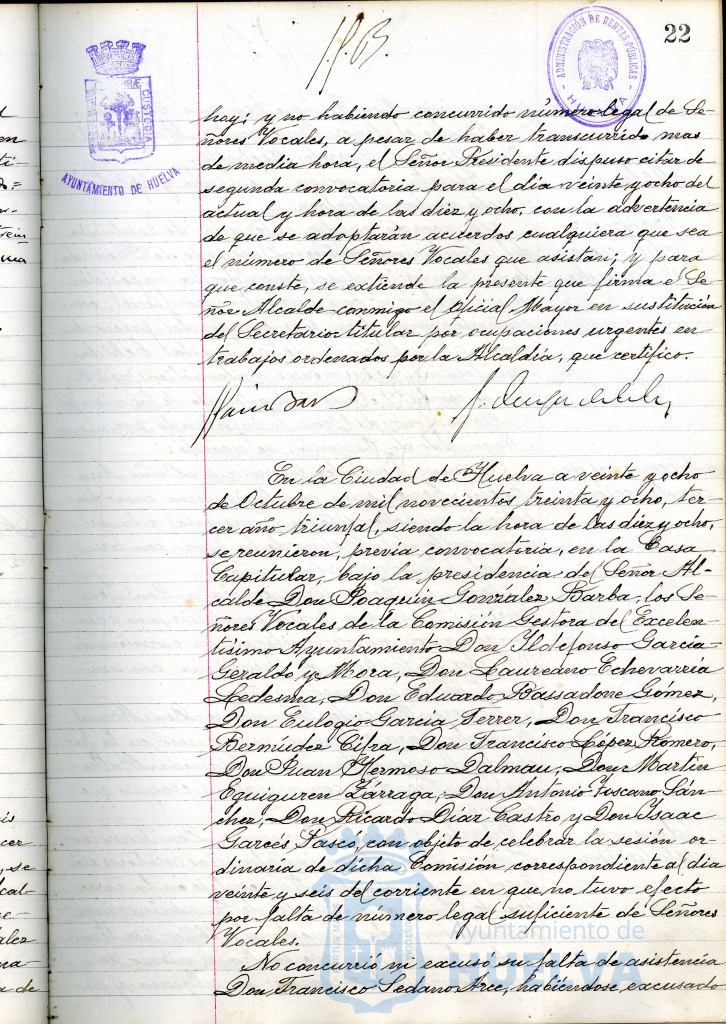 22
AYUNTAMIENTO DE HUELVA
ADMINISTRACIÓN DE RENTAS PUBLICAS
HUELVA
hoy; y no habiendo concurrido número legal de Se-
ñores Vocales, a pesar de haber transcurrido mas
de media hora, el Señor Presidente dispuso citar de
segunda convocatoria para el dia veinte y ocho del
actual y hora de las diez y ocho, con la advertencia
de que se adoptarán acuerdos cualquiera que sea
el número de Señores Vocales que asistan; y para
que conste, se extiende la presente que firma el Se-
ñor Alcalde conmigo el Oficial Mayor en sustitución
del Secretario titular por ocupaciones urgentes en
trabajos ordenados por la Alcaldía, que certifico.
En la Ciudad de Huelva a veinte y ocho
de Octubre de mil novecientos treinta y ocho, ter
cer año triunfal, siendo la hora de las diez y ocho,
se reunieron, previa convocatoria, en la Casa
Capitular, bajo la presidencia del Señor Al-
calde Don Joaquín Gonzalez Barba, los Se-
ñores Vocales de la Comisión Gestora del Excelen-
tísimo Ayuntamiento Don Ildefonso Garcia-
Geraldo y Mora, Don Laureano Echevarría
Ledesma, Don Eduardo Bassadone Gómez,
Don Eulogio Garcia Ferrer, Don Francisco
Bermúdez Cifra, Don Francisco López Romero,
Don Juan Hermoso Dalmau, Don Martin
Eguiguren Zárraga, Don Antonio Toscano Sán-
chez, Don Ricardo Díaz Castro y Don Isaac
Garcés Sascó, con objeto de celebrar la sesión or-
dinaria de dicha Comisión correspondiente al dia
veinte y seis del corriente en que no tuvo efecto
por falta de número legal suficiente de Señores
Vocales.
No concurrió ni excusó su falta de asistencia
Don Francisco Sedano Arce, habiéndose excusado
Ayuntamiento de
HUELVA